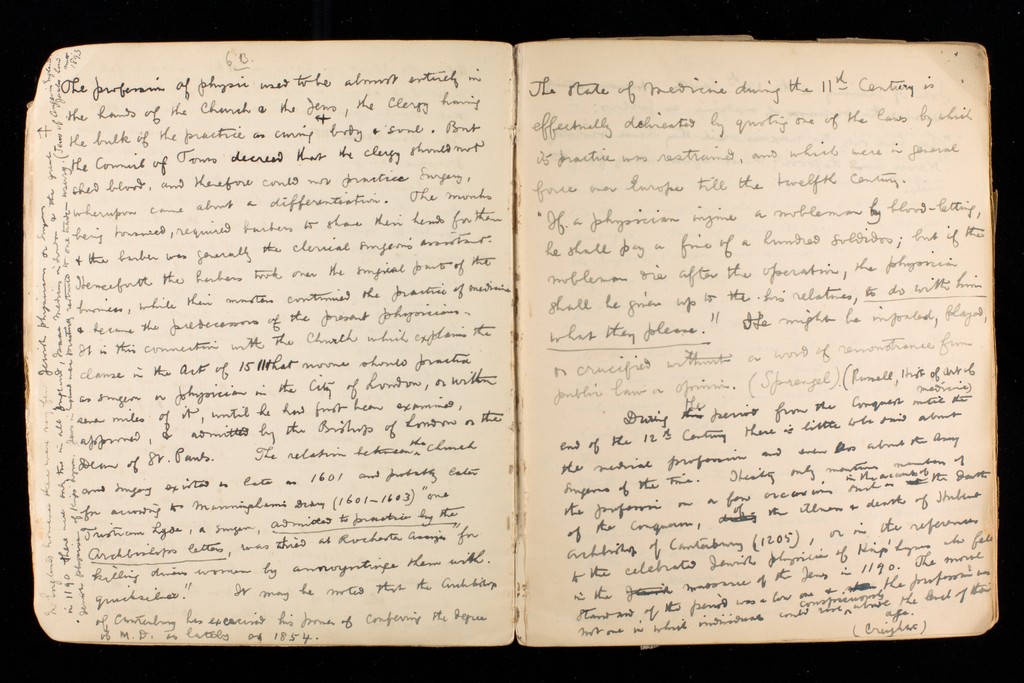 6 B.
The profession of physic used to be almost entirely in
the hands of the Church & the Jews, the Clergy having
the bulk of the practice as curing body & soul. But
the Council of Tours decreed that the clergy should not
shed blood, and therefore could not practice Surgery,
whereupon came about a differentiation. The monks
being tonsured, required barbers to shave their heads for them
& the barber was generally the clerical surgeon's assistant.
Henceforth the barbers took over the surgical part of the
business, while their masters continued the practice of medicine
& became the predecessors of the present physicians.
It is this connection with the Church which explains the
clause in the Act of 1511 that no one should practice
as surgeon or physician in the City of London, or within
seven miles of it, until he had first been examined,
approved, & admitted by the Bishop of London or the
Dean of St. Pauls. The relation between the Church
and Surgery existed as late as 1601 and probably later
for according to Manningham's Diary (1601-1603) "one
Tristram Lyde, a surgeon, admitted to practice by the
Archbishops letters, was tried at Rochester Assizes for
killing divers women by annoyntinge them with
quicksilver." It may be noted that the Archbishop
of Canterbury has exercised his power of conferring the degree
of M.D. as lately as 1854.
in 1190 there was only
The state of medicine during the 11th Century is
effectually delineated by quoting one of the laws by which
its practice was restrained, and which were in general
force over Europe till the twelfth Century.
"If a physician injure a nobleman by blood-letting,
he shall pay a fine of a hundred soldidos; but if the
nobleman die after the operation, the physician
shall be given up to the his relatives, to do with him
what they please." He might be impaled, flayed,
or crucified without a word of remonstrance from
public law or opinion. (Sprengel). (Russell, Hist. of Art of
medicine)
During the period from the Conquest until the
end of the 12th Century there is little to be said about
the medical profession and even less about the Army
Surgeons of the time. History only mentions members of
the profession on a few occasions such as in the account of the death
of the Conqueror, of the illness & death of Hubert
Archbishop of Canterbury (1205), or in the references
to the celebrated Jewish physician of King's Lynn who fell
in the massacre of the Jews in 1190. The moral
standard of the period was a low one & the profession was
not one in which individuals could rise conspicuously above the level of their
age.
(Creighton)